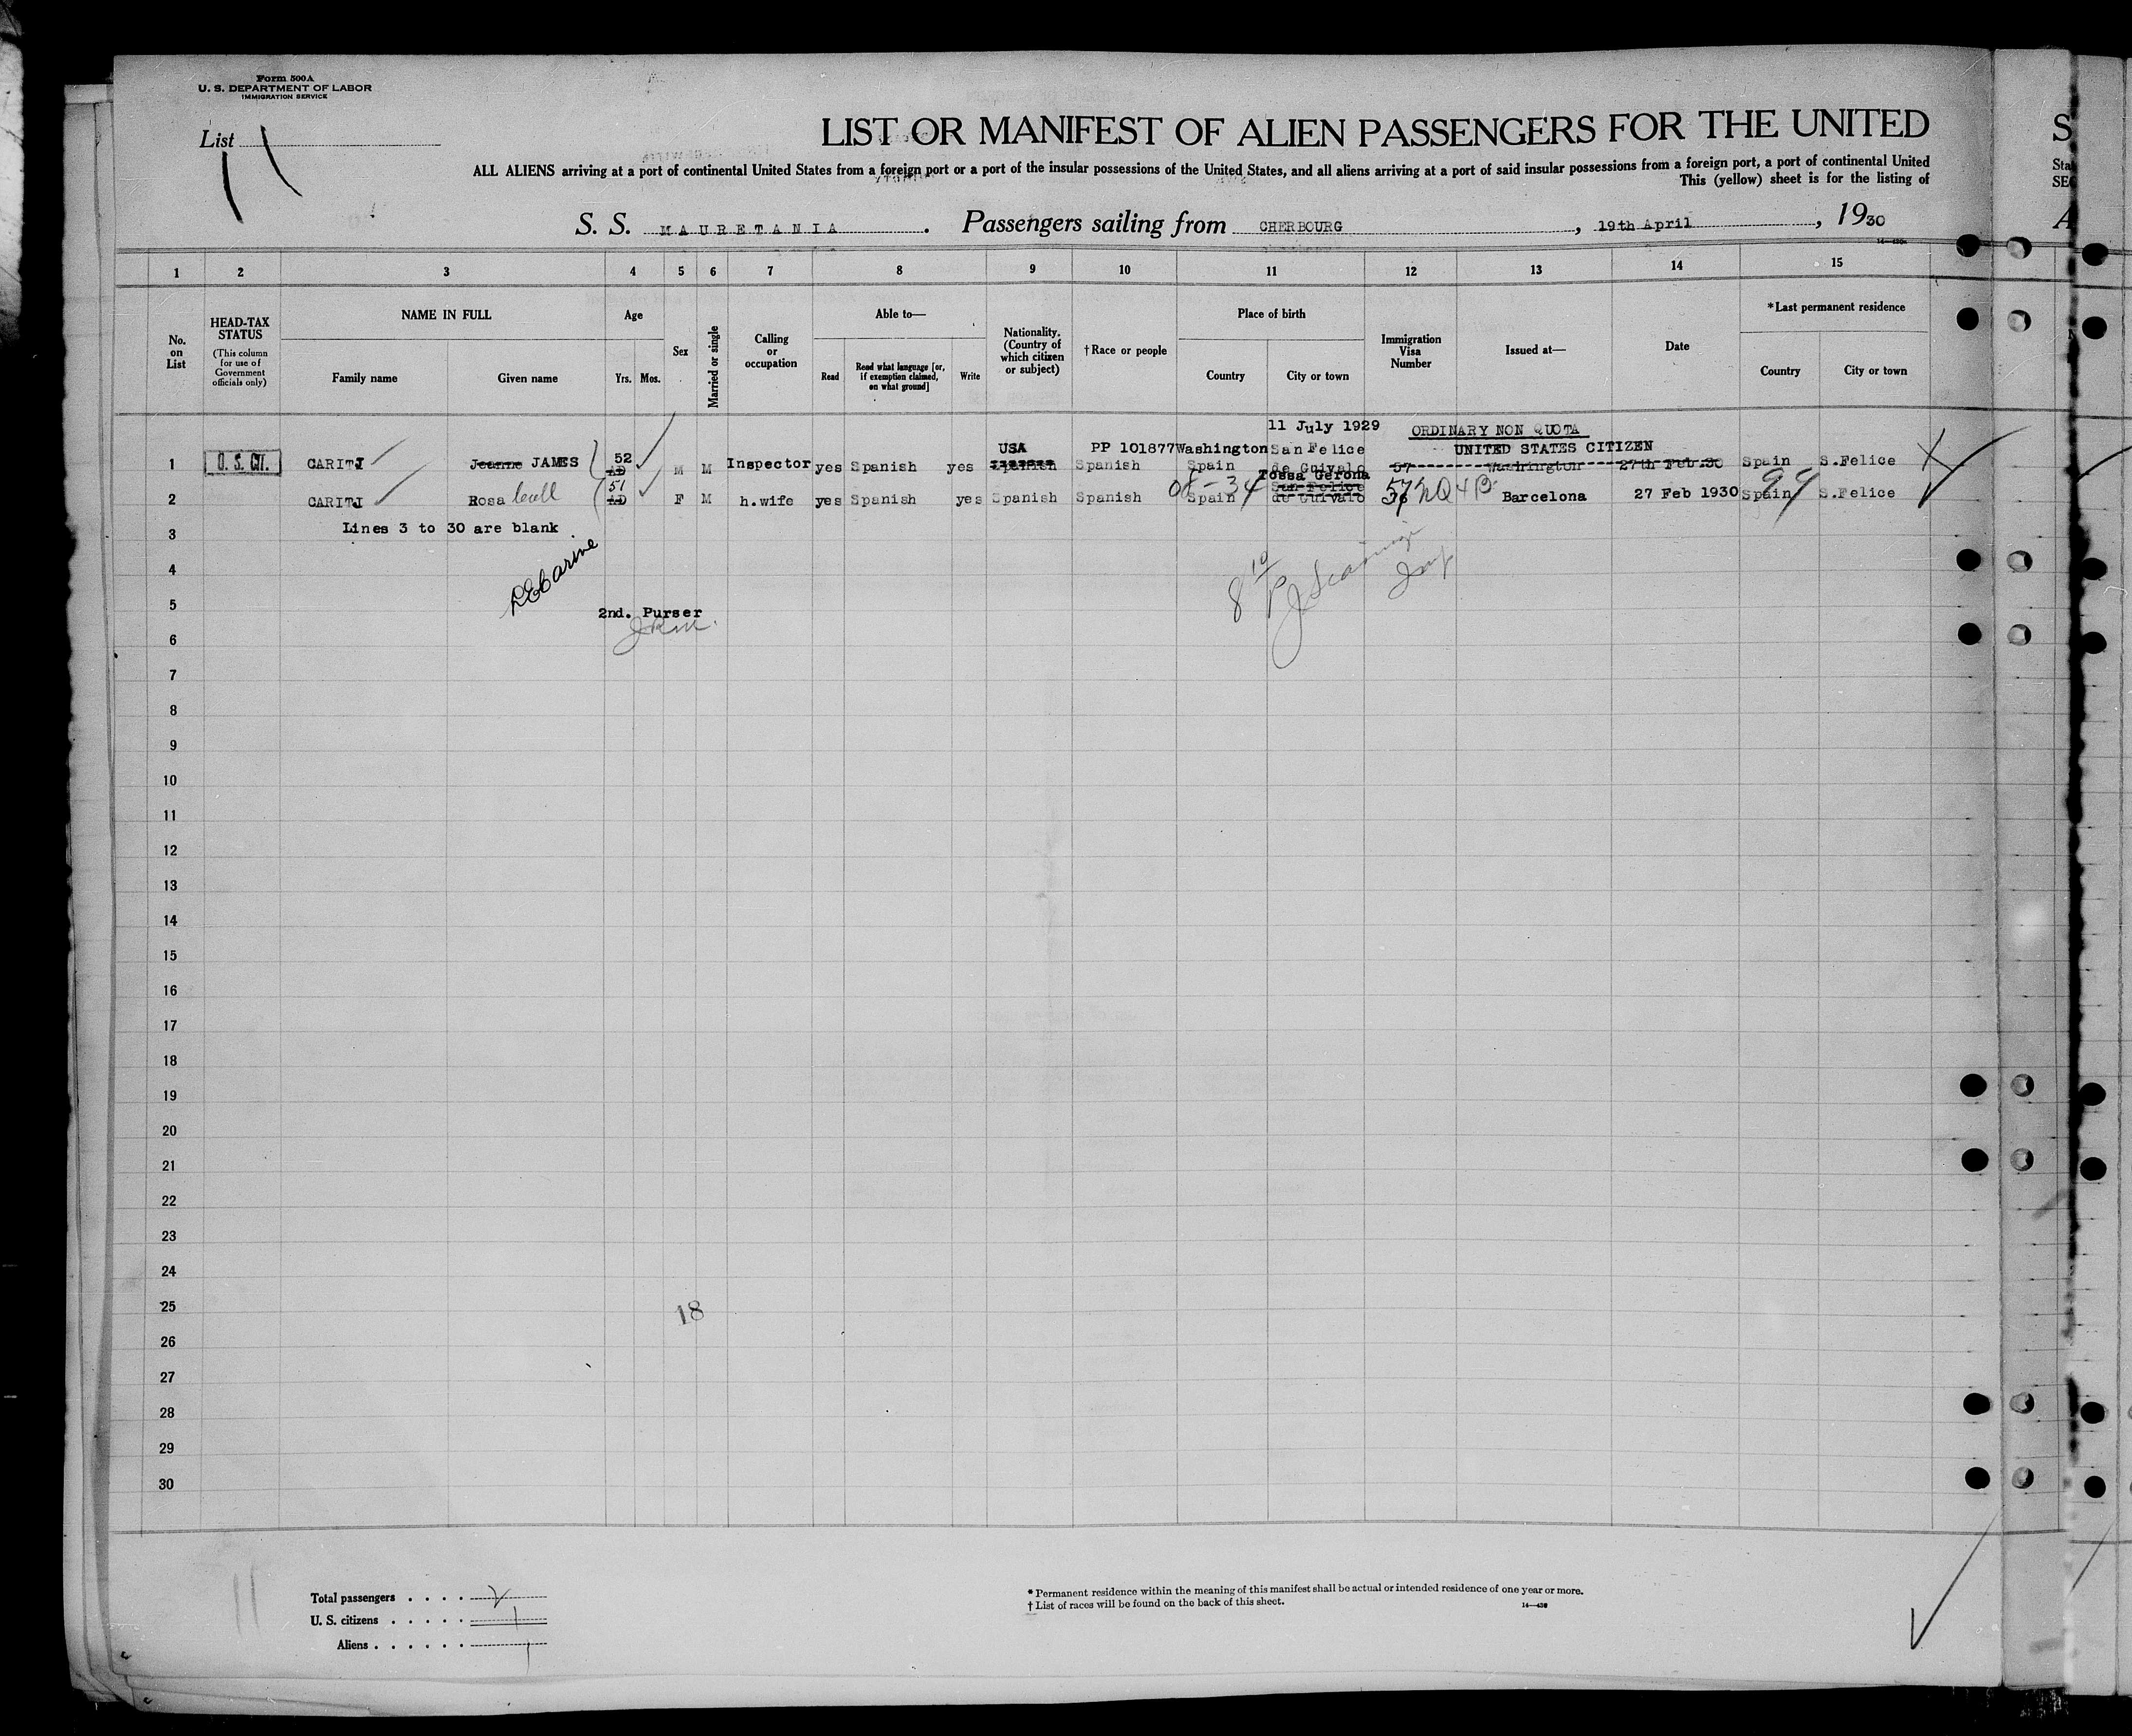 Form 500A
U. S. DEPARTMENT OF LABOR
IMMIGRATION SERVICE
List 11
LIST OR MANIFEST OF ALIEN PASSENGERS FOR THE UNITED
ALL ALIENS arriving at a port of continental United States from a foreign port or a port of the insular possessions of the United States, and all aliens arriving at a port of said insular possessions from a foreign port, a port of continental United
This (yellow) sheet is for the listing of
S. S. MAURETANIA. Passengers sailing from CHERBOURG, 19th April, 1930
1 2 3 4 5 6 7 8 9 10 11 12 13 14 15
No. on List
HEAD-TAX STATUS
(This column for use of Government officials only)
NAME IN FULL
Family name
Given name
Age
Yrs. Mos.
Sex
Married or single
Calling or occupation
Able to—
Read
Read what language [or, if exemption claimed, on what ground]
Write
Nationality. (Country of which citizen or subject)
†Race or people
Place of birth
Country
City or town
Immigration Visa Number
Issued at—
Date
*Last permanent residence
Country
City or town
11 July 1929 ORDINARY NON QUOTA
52 USA PP 101877 Washington San Felice UNITED STATES CITIZEN
1 U. S. CIT. CARITJ Jeanne JAMES AD M M Inspector yes Spanish yes Spanish Spanish Spain de Guivalo 57 Washington 27th Feb.30 Spain S.Felice
51 Tossa Gerona
2 CARITJ Rosa AD F M h.wife yes Spanish yes Spanish Spanish 08-34 Spain San Felice de Guivalo 57 NQ 4B Barcelona 27 Feb 1930 Spain 99 S.Felice
Lines 3 to 30 are blank
3
4
5
2nd. Purser
6
7
8
9
10
11
12
13
14
15
16
17
18
19
20
21
22
23
24
25
18
26
27
28
29
30
11
Total passengers . . . . 2
U. S. citizens . . . . . 1
Aliens . . . . . . 1
* Permanent residence within the meaning of this manifest shall be actual or intended residence of one year or more.
† List of races will be found on the back of this sheet.